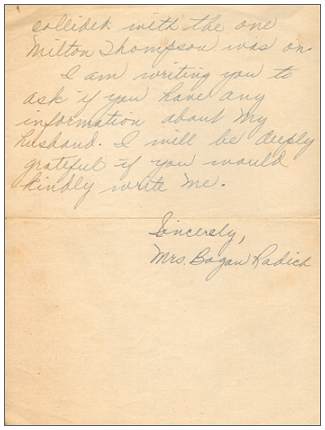 collided with the one
Milton Thompson was on.
I am writing you to
ask if you have any
information about my
husband. I will be deeply
grateful if you would
kindly write me.
Sincerely,
Mrs. Bogan Radich